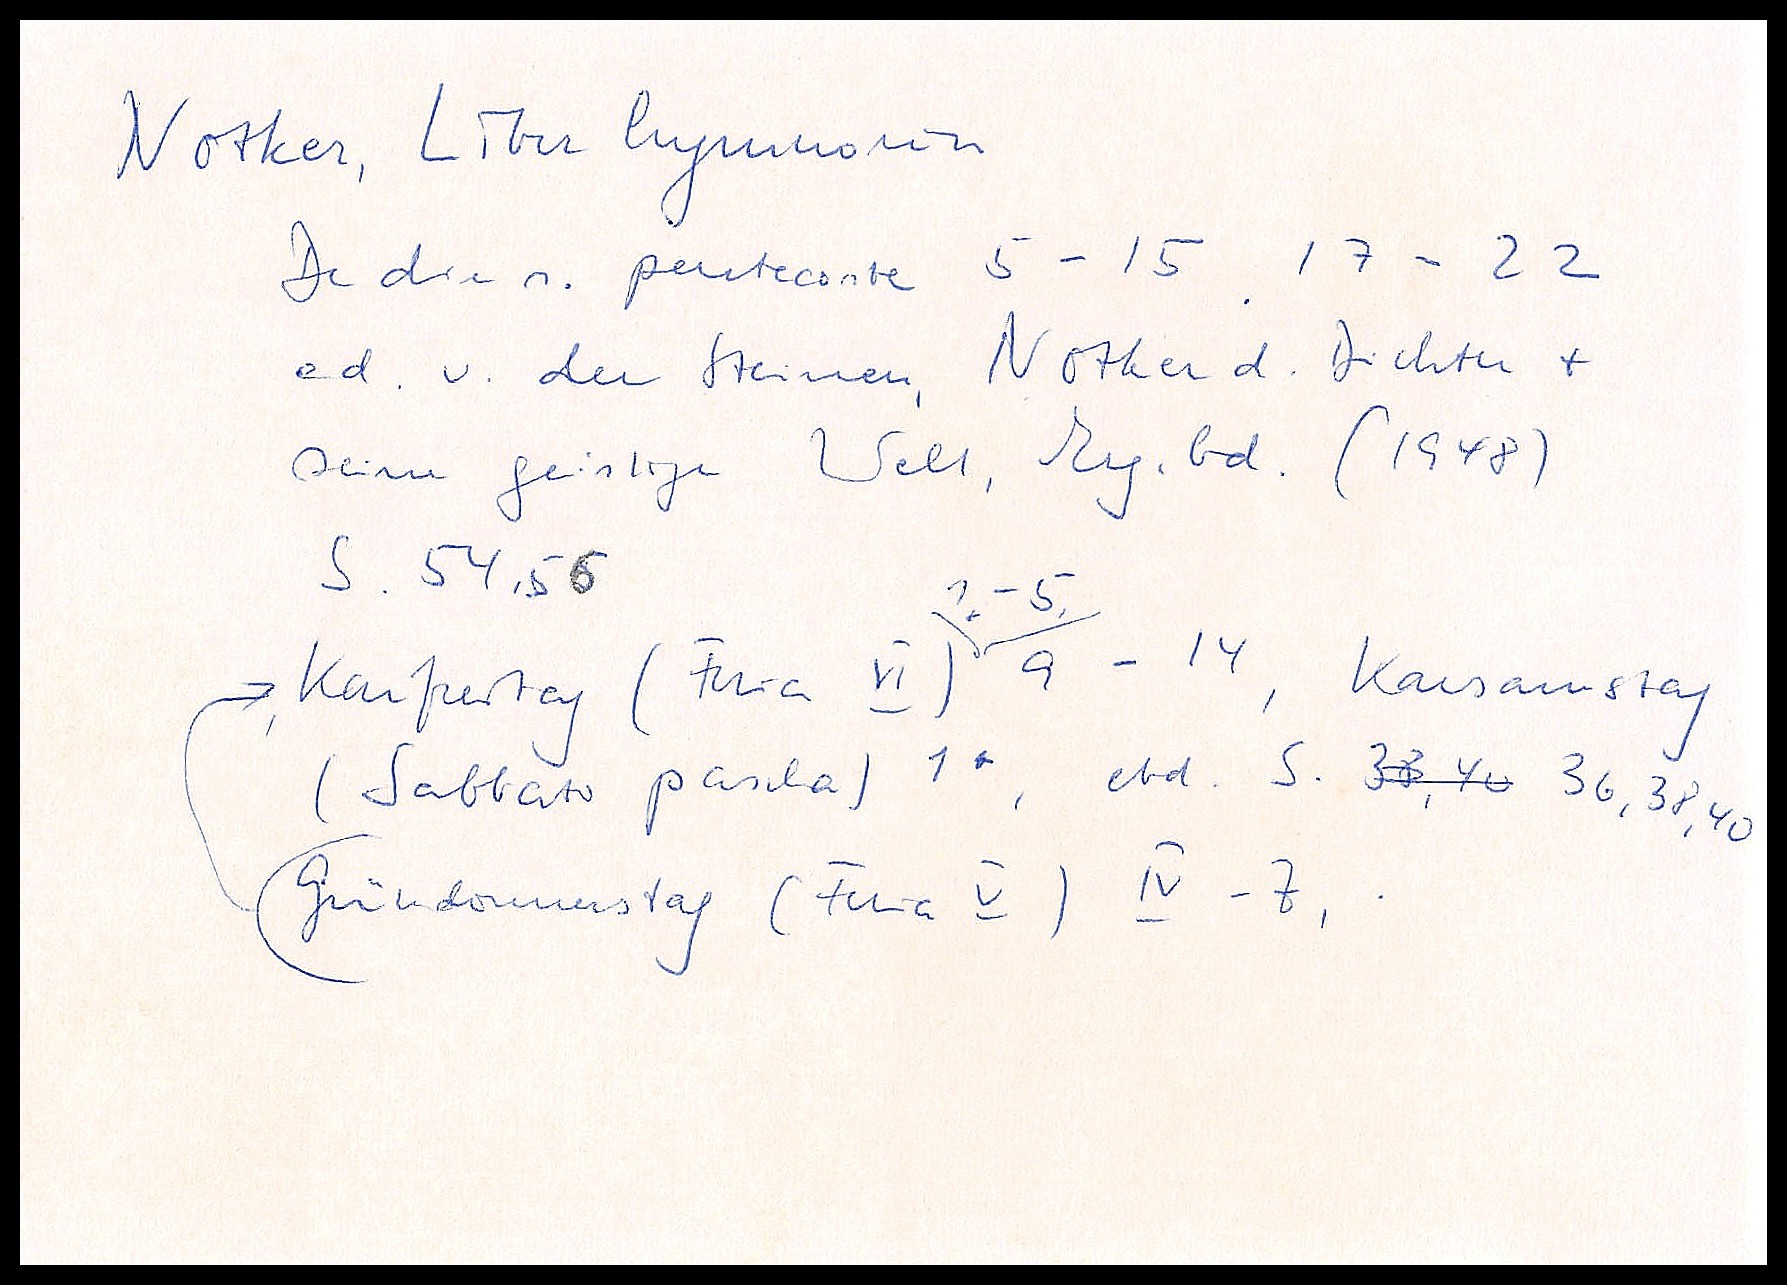 Notker, Liber hymnorum
De die s. pentecoste 5-15. 17-22
ed. v. den Steinen, Notker d. Dichter +
seine geistige Welt, Erg.bd. (1948)
S. 54,56
1.-5,
Karfreitag (Feria VI) 9-14, Karsamstag
(Sabbato pascha) 1*, ebd. S. 38,40 36,38,40
Gründonnerstag (Feria V) IV-7,